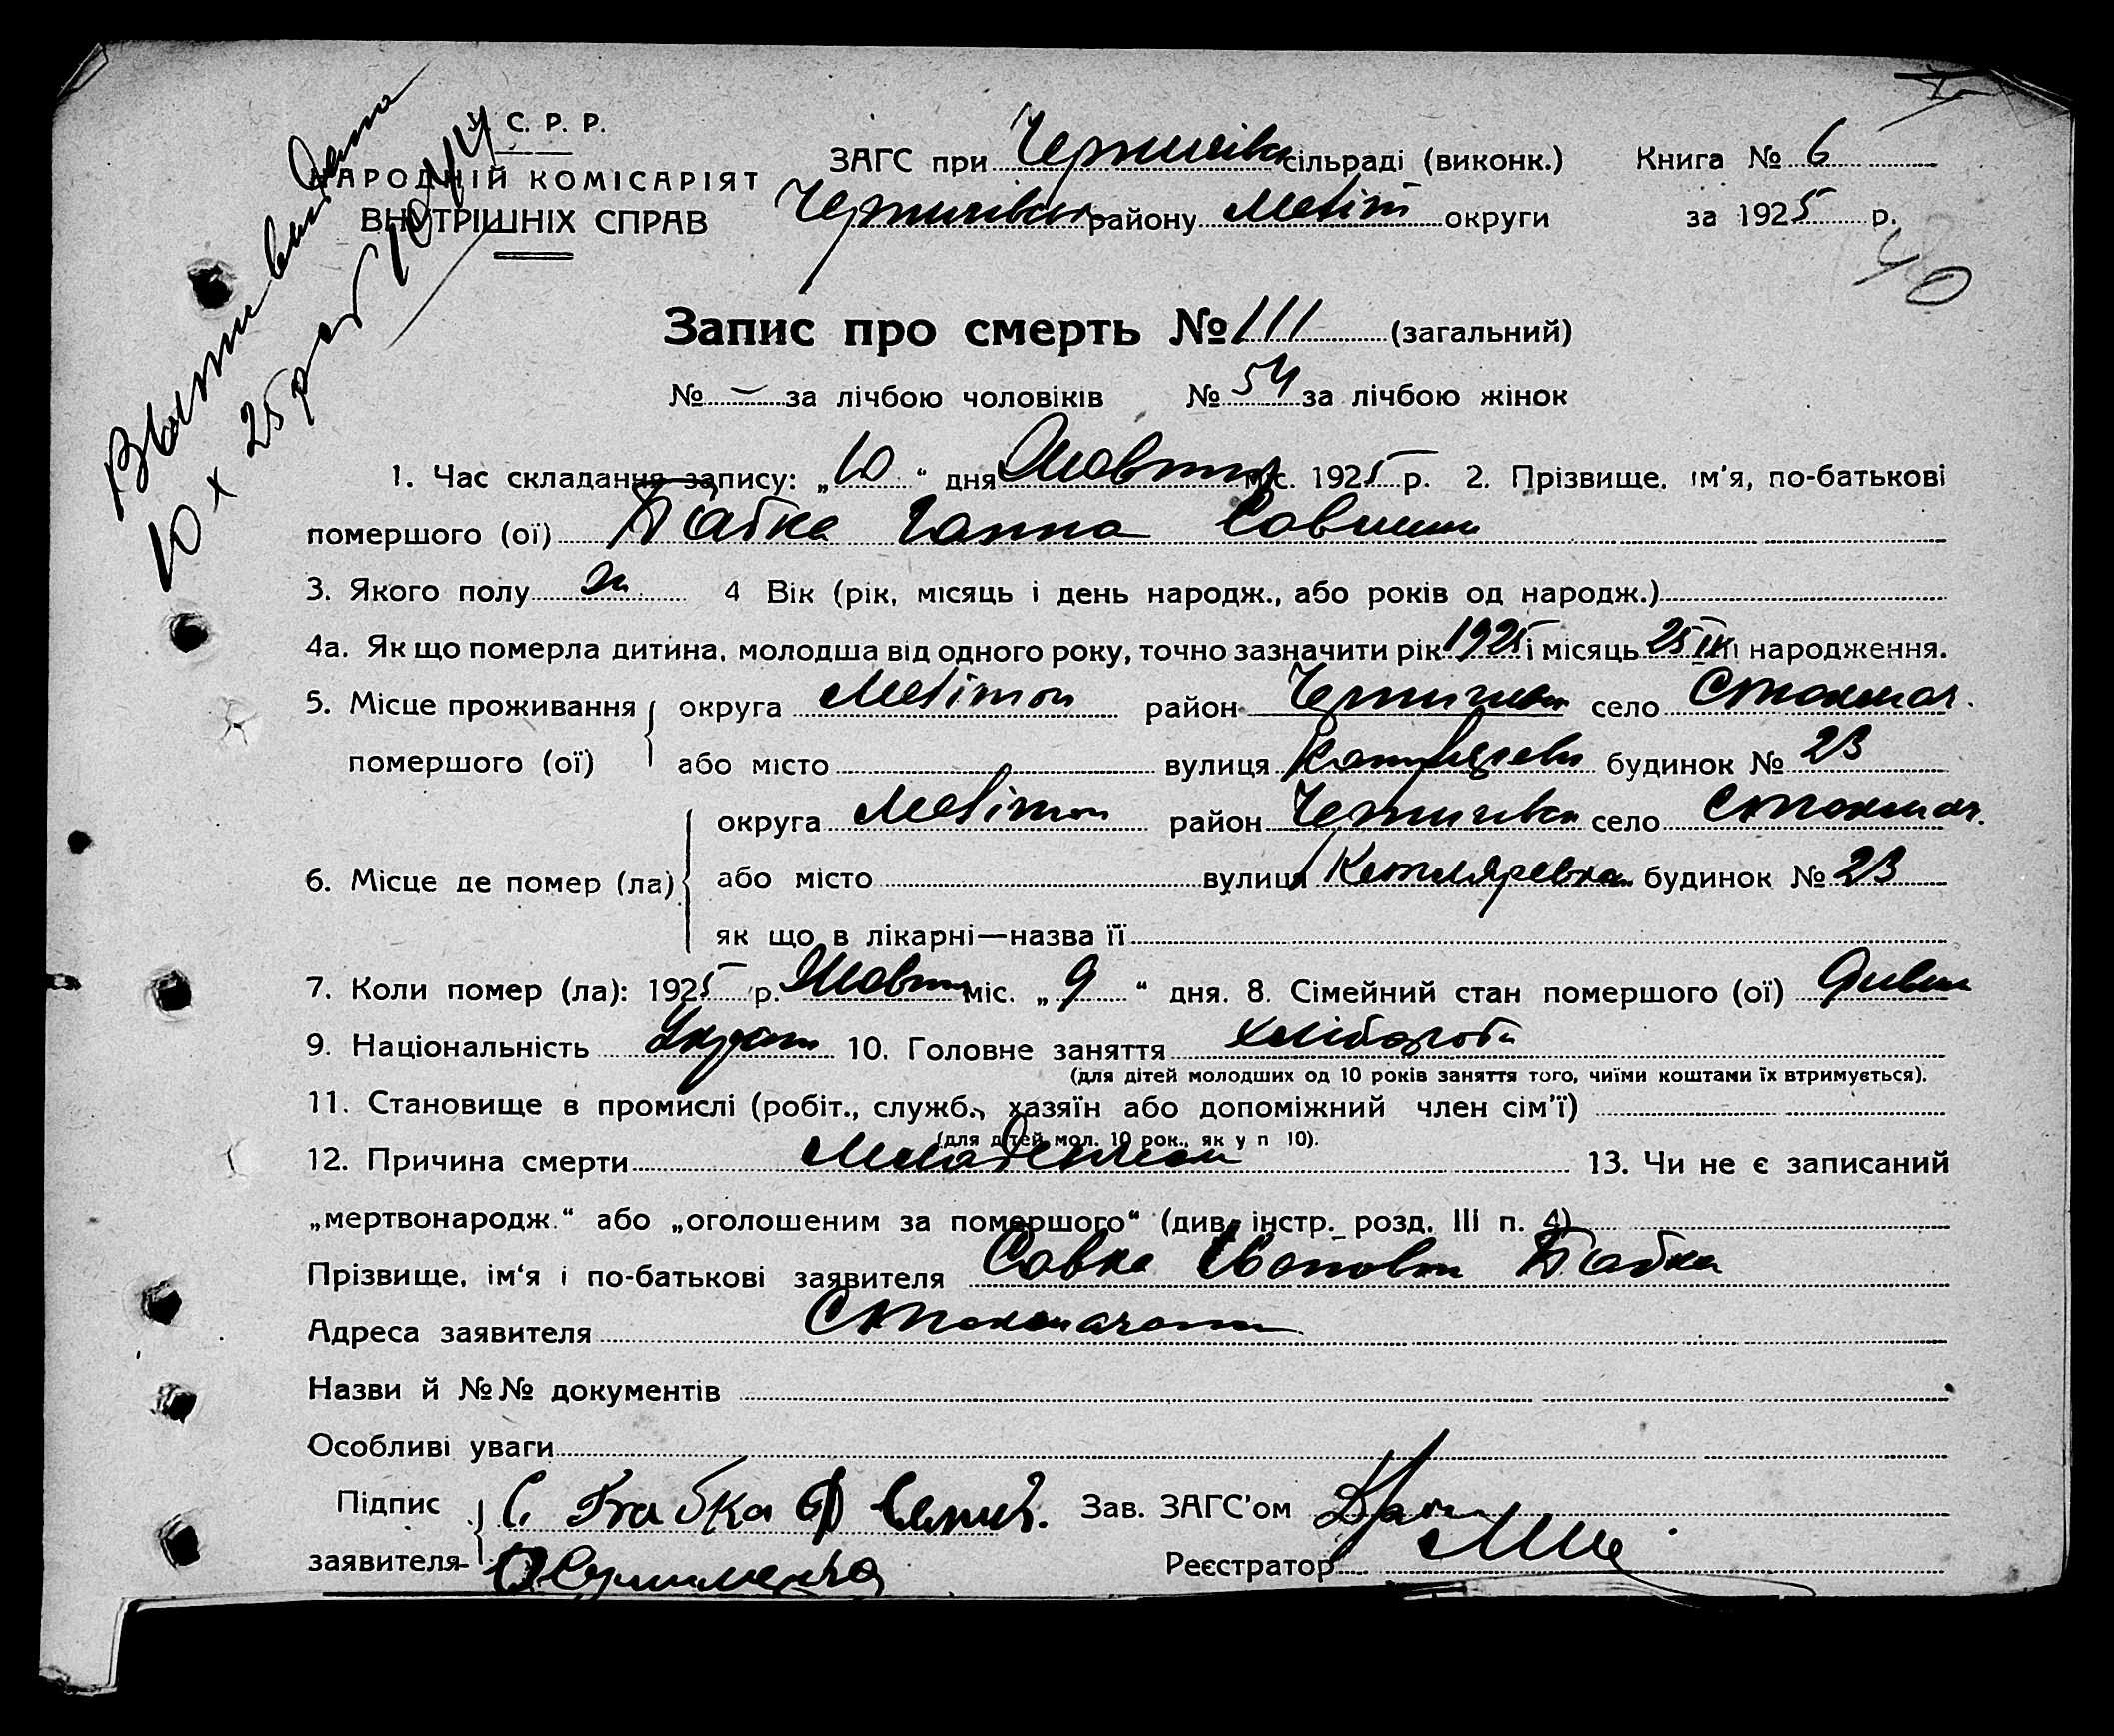 У. С. Р. Р.
НАРОДНІЙ КОМІСАРІЯТ
ВНУТРІШНІХ СПРАВ
ЗАГС при Чернигівск сільраді (виконк.) Книга № 6
Чернигівськ району Меліт округи за 1925 р.
40
Выпись выдана
10 X 25
Запис про смерть № 111 (загальний)
№ – за лічбою чоловіків № 54 за лічбою жінок
1. Час складання запису: „10“ дня Жовтня міс. 1925 р. 2. Прізвище, ім'я, по-батькові
помершого (ої) Бабка Ганна Савишна
3. Якого полу ж 4 Вік (рік, місяць і день народж., або років од народж.)
4а. Як що померла дитина, молодша від одного року, точно зазначити рік 1925 і місяць 25 IX народження.
5. Місце проживання округа Мелітоп район Чернигівськ село Стокопан.
помершого (ої) або місто вулиця Котляревск будинок № 23
округа Мелітоп район Чернигівск село Стокопан.
6. Місце де помер (ла) або місто вулиця Котляревска будинок № 23
як що в лікарні—назва її
7. Коли помер (ла): 1925 р. Жовтня міс. „9“ дня. 8. Сімейний стан помершого (ої)
9. Національність Україн 10. Головне заняття хлібороби
(для дітей молодших од 10 років заняття того, чиїми коштами їх втримується).
11. Становище в промислі (робіт., служб., хазяїн або допоміжний член сім'ї)
(для дітей мол. 10 рок., як у п 10).
12. Причина смерти Младенческ 13. Чи не є записаний
„мертвонародж.“ або „оголошеним за помершого“ (див. інстр. розд. III п. 4)
Прізвище, ім'я і по-батькові заявителя Савка Іванович Бабка
Адреса заявителя
Назви й №№ документів
Особливі уваги
Підпис С. Бабка Зав. ЗАГС'ом
заявителя Реєстратор